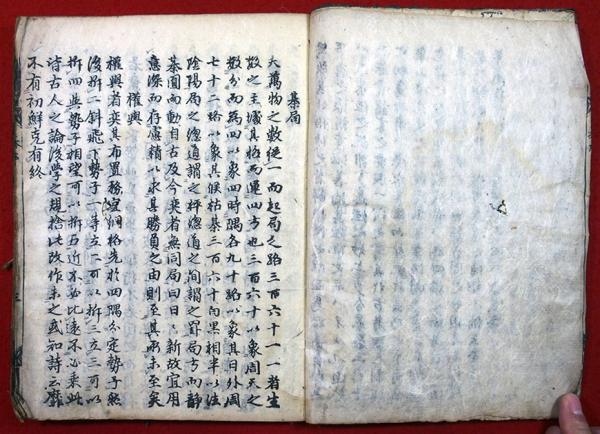 棊局
夫萬物之數從一而起局之路三百六十一一者生
數之主據其極而運四方也三百六十以象周天之
數分而爲四以象四時隅各九十路以象其日外周
七十二路以象其候枯棊三百六十白黑相半以法
陰陽局之線道謂之枰線道之間謂之罫局方而靜
棊圓而動自古及今奕者無同局曰日〻新故宜用
意深而存慮精以求其勝負之由則至其所未至矣
權輿
權輿者奕其布置務守綱格先於四隅分定勢子然
後拆二斜飛下勢子一等立二可以拆三立三可以
拆四與勢子相望可以拆五近不必比遠不必乖此
皆古人之論後學之規捨此改作未之或知詩云靡
不有初鮮克有終
三